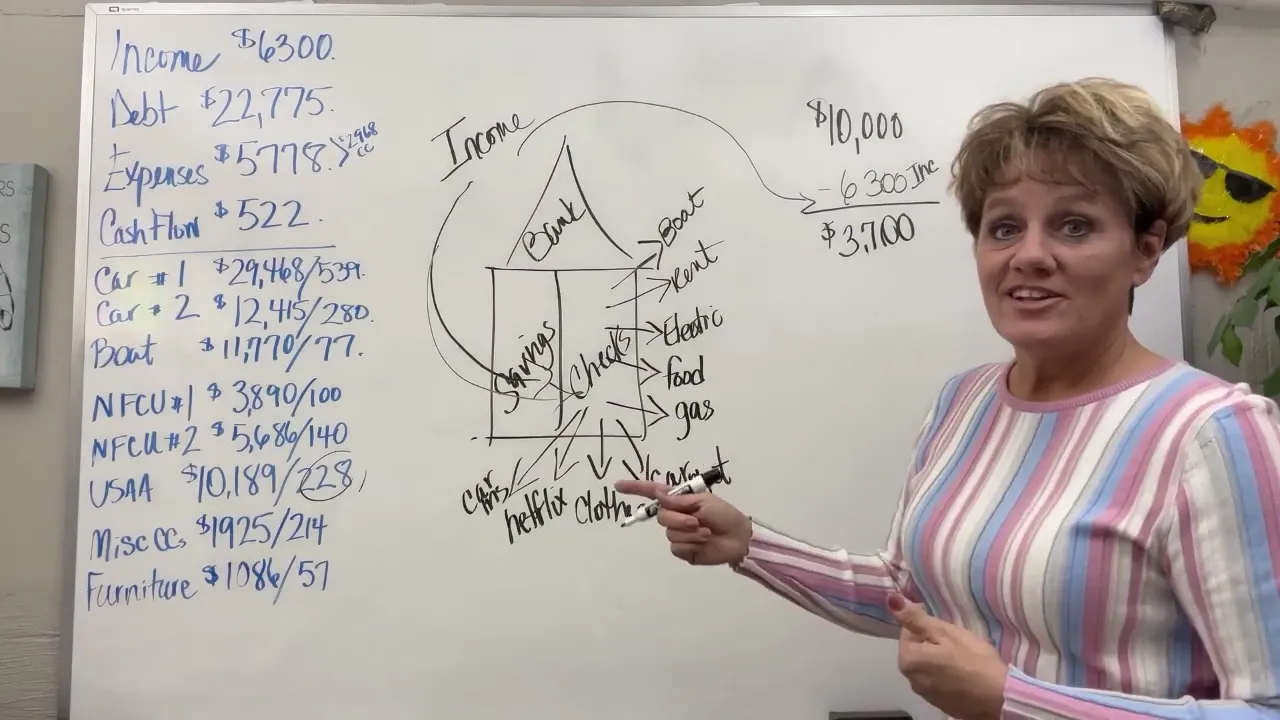 Income $6300.
Debt $22,775.
+
Expenses $5778. > $2968
CC
Cash Flow $522.
Car #1 $29,468/539.
Car #2 $12,415/280.
Boat $11,770/77.
NFCU #1 $3,890/100
NFCU #2 $5,686/140
USAA $10,189/228
Misc CCs $1925/214
Furniture $1086/57
Income
Bank
Savings
Checks
Boat
Rent
Electric
food
gas
car
ins
netflix
Clothe
$10,000
- 6300 Inc
$3,700
RS
S